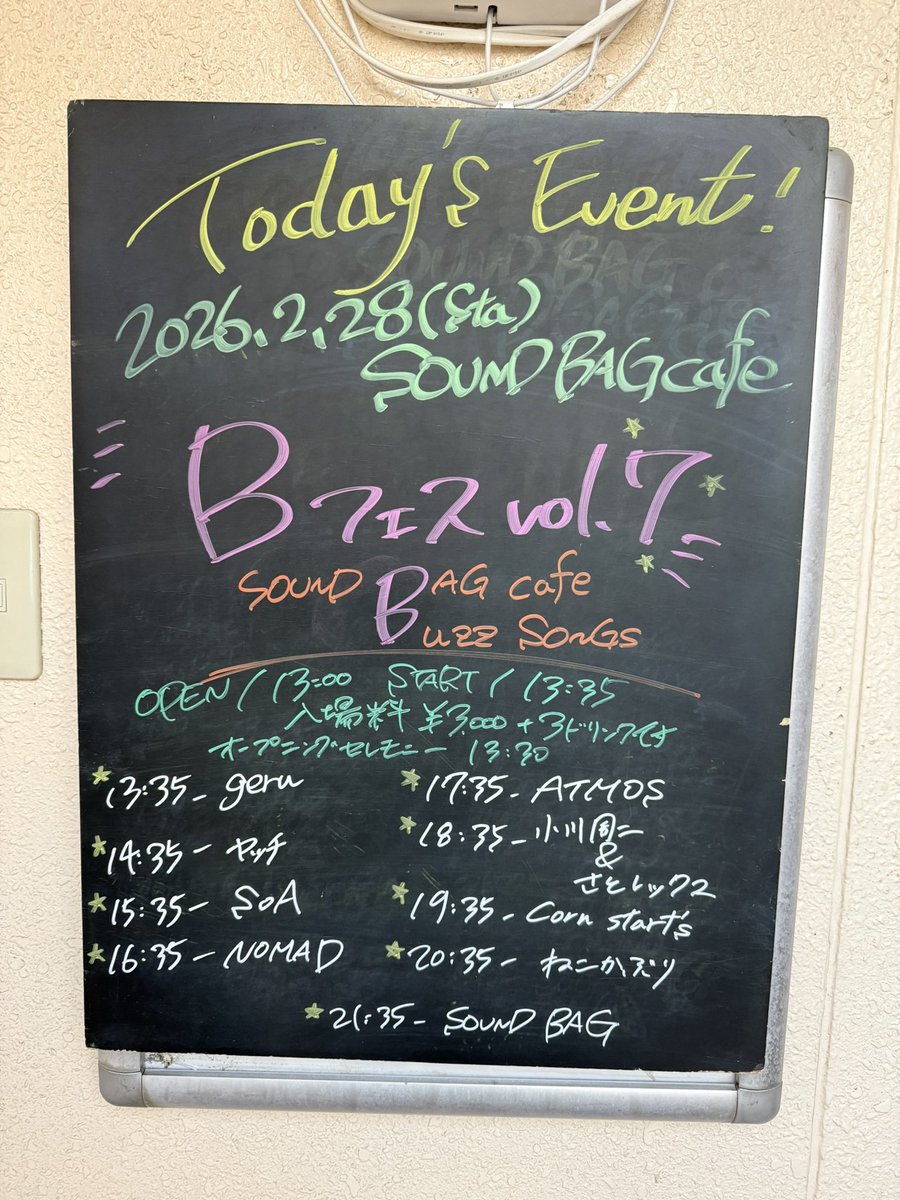 Today's Event!
2026.2.28(Sta)
SOUND BAG cafe
Bフェスvol.7
SOUND BAG cafe
Buzz SONGS
OPEN/13:00 START/13:35
入場料 ¥3,000+3ドリンク付
オープニングセレモニー 13:30
13:35- geru
14:35- ヤッチ
15:35- SOA
16:35- NOMAD
17:35- ATMOS
18:35- 小川周二
&
さとレックス
19:35- Corn start's
20:35- ねこかぶり
21:35- SOUND BAG